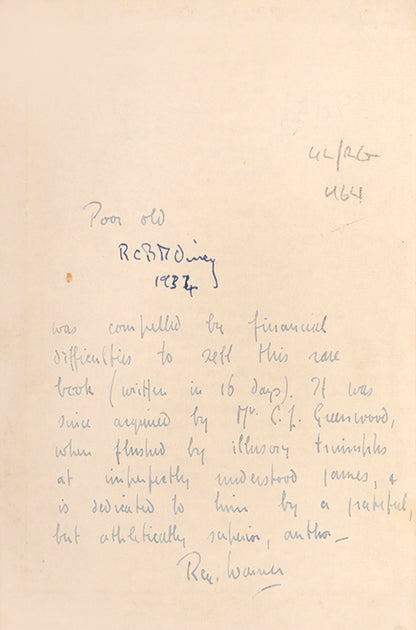 Poor old
1934
was compelled by financial
difficulties to sell this rare
book (written in 16 days). It was
since acquired by Mr. C. J. Greenwood,
when flushed by illusory triumphs
at imperfectly understood games, &
is dedicated to him by a grateful,
but athletically superior, author—
Rex. Warner